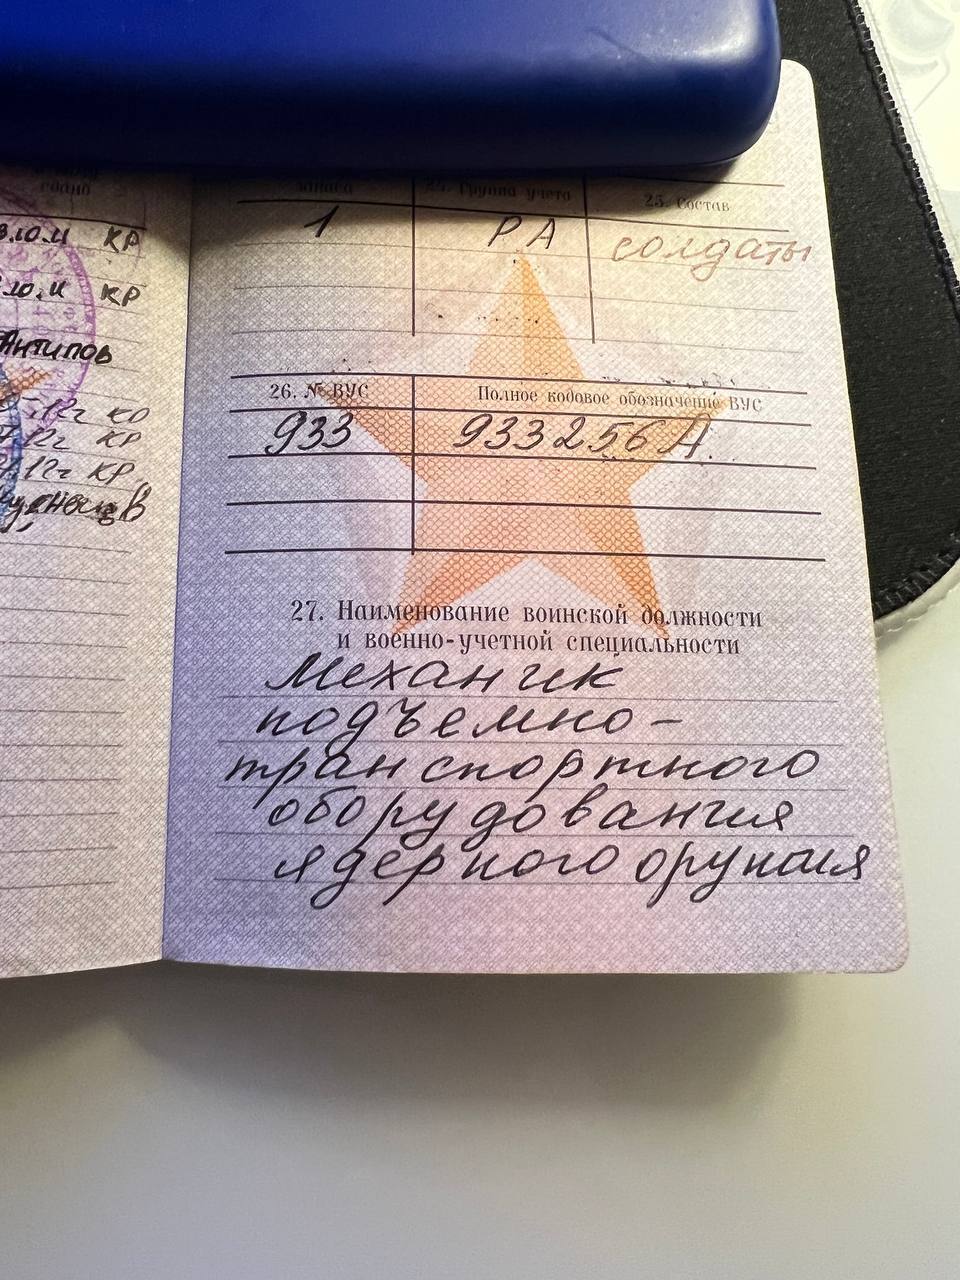 сдано
КР
КР
Антипов
12г КР
12г КР
12г КР
запаса
24. Группа учета
25. Состав
1
РА
солдаты
26. № ВУС
Полное кодовое обозначение ВУС
933
933256А
27. Наименование воинской должности
и военно-учетной специальности
Механик
подъемно-
транспортного
оборудования
ядерного оружия